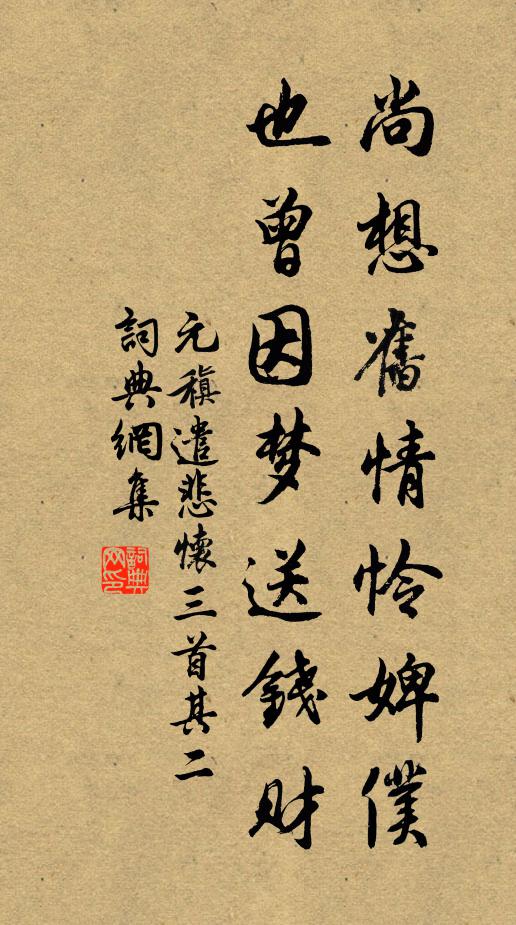 尚想舊情怜婢僕
也曾因梦送錢財
元稹遣悲懷三首其二
詞典網集
詞典网印